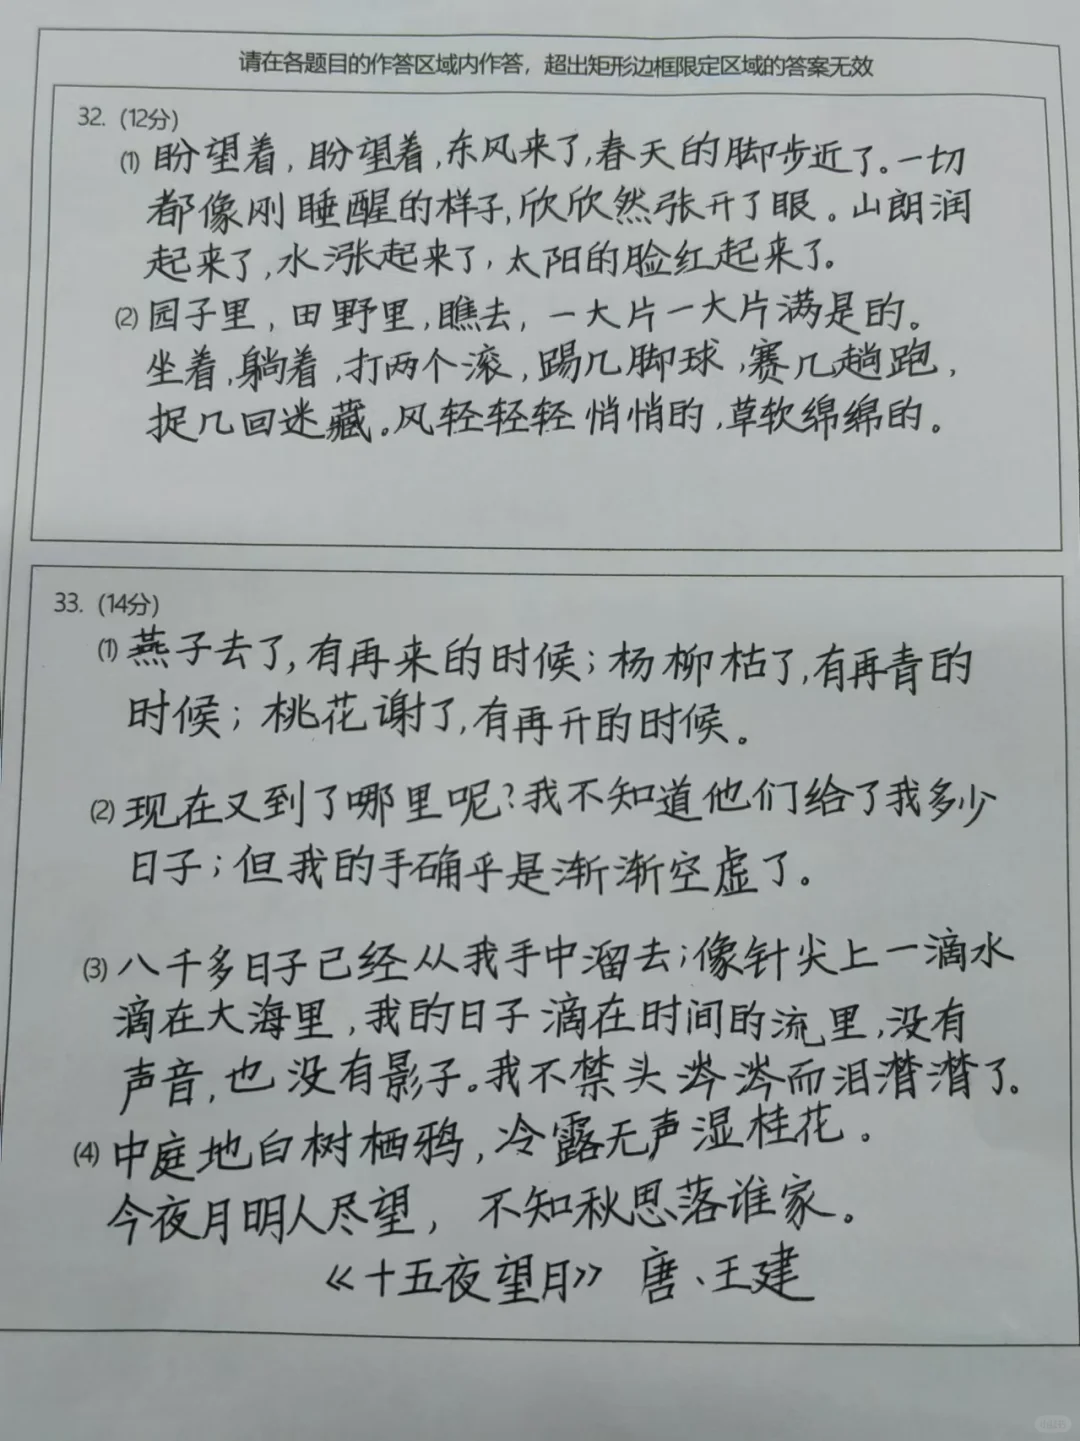 请在各题目的作答区域内作答，超出矩形边框限定区域的答案无效
32. (12分)
(1) 盼望着，盼望着，东风来了，春天的脚步近了。一切
都像刚睡醒的样子，欣欣然张开了眼。山朗润
起来了，水涨起来了，太阳的脸红起来了。
(2) 园子里，田野里，瞧去，一大片一大片满是的。
坐着，躺着，打两个滚，踢几脚球，赛几趟跑，
捉几回迷藏。风轻轻轻悄悄的，草软绵绵的。
33. (14分)
(1) 燕子去了，有再来的时候；杨柳枯了，有再青的
时候；桃花谢了，有再开的时候。
(2) 现在又到了哪里呢？我不知道他们给了我多少
日子；但我的手确乎是渐渐空虚了。
(3) 八千多日子已经从我手中溜去；像针尖上一滴水
滴在大海里，我的日子滴在时间的流里，没有
声音，也没有影子。我不禁头涔涔而泪潸潸了。
(4) 中庭地白树栖鸦，冷露无声湿桂花。
今夜月明人尽望，不知秋思落谁家。
《十五夜望月》 唐、王建